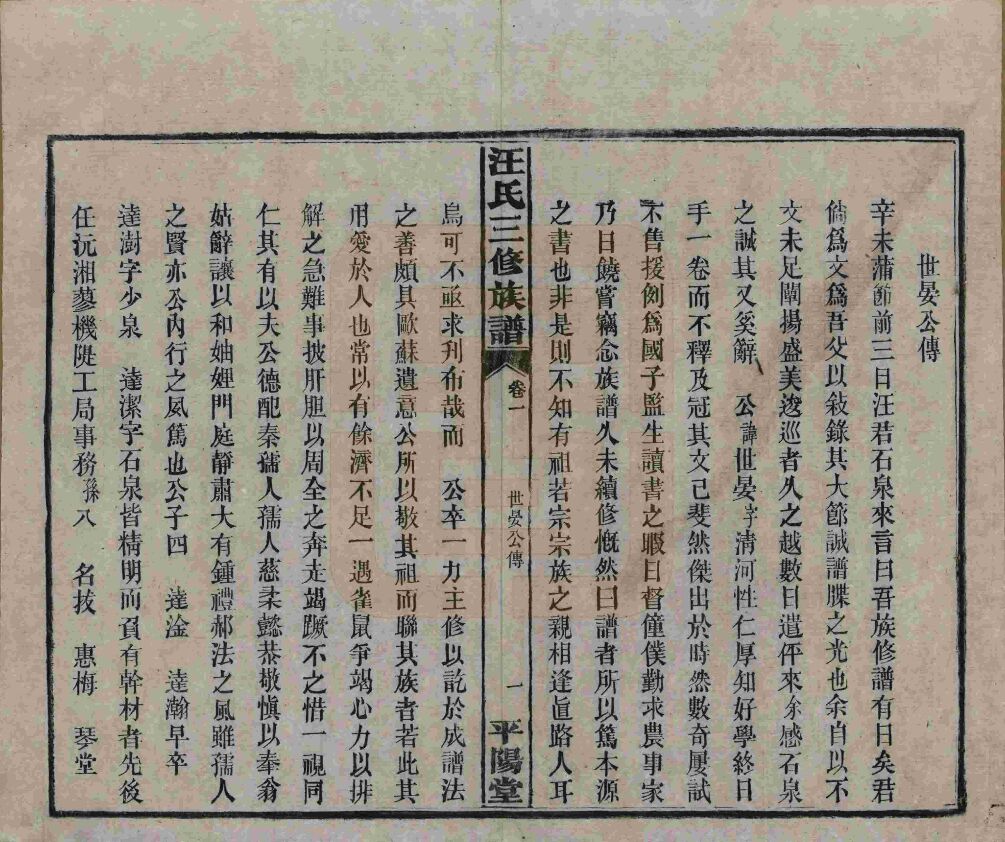 世晏公傳
辛未蒲節前三日汪君石泉來言曰吾族修譜有日矣君
倘爲文爲吾父以敍錄其大節誠譜牒之光也余自以不
文未足闡揚盛美逡巡者久之越數日遣伻來余感石泉
之誠其又奚辭 公諱世晏字清河性仁厚知好學終日
手一卷而不釋及冠其文已斐然傑出於時然數奇屢試
不售援例爲國子監生讀書之暇日督僮僕勤求農事家
乃日饒嘗竊念族譜久未續修慨然曰譜者所以篤本源
之書也非是則不知有祖若宗宗族之親相逢直路人耳
汪氏三修族譜 卷一 世晏公傳 一 平陽堂
烏可不亟求刋布哉而 公卒一力主修以訖於成譜法
之善頗具歐蘇遺意公所以敬其祖而聯其族者若此其
用愛於人也常以有餘濟不足一遇雀鼠爭竭心力以排
解之急難事披肝胆以周全之奔走竭蹶不之惜一視同
仁其有以夫公德配秦孺人孺人慈柔懿恭敬愼以奉翁
姑辭讓以和妯娌門庭靜肅大有鍾禮郝法之風雖孺人
之賢亦公內行之風篤也公子四 達淦 達瀚早卒
達澍字少泉 達潔字石泉皆精明而負有幹材者先後
任沅湘蓼機隄工局事務孫八 名拔 惠梅 琴堂